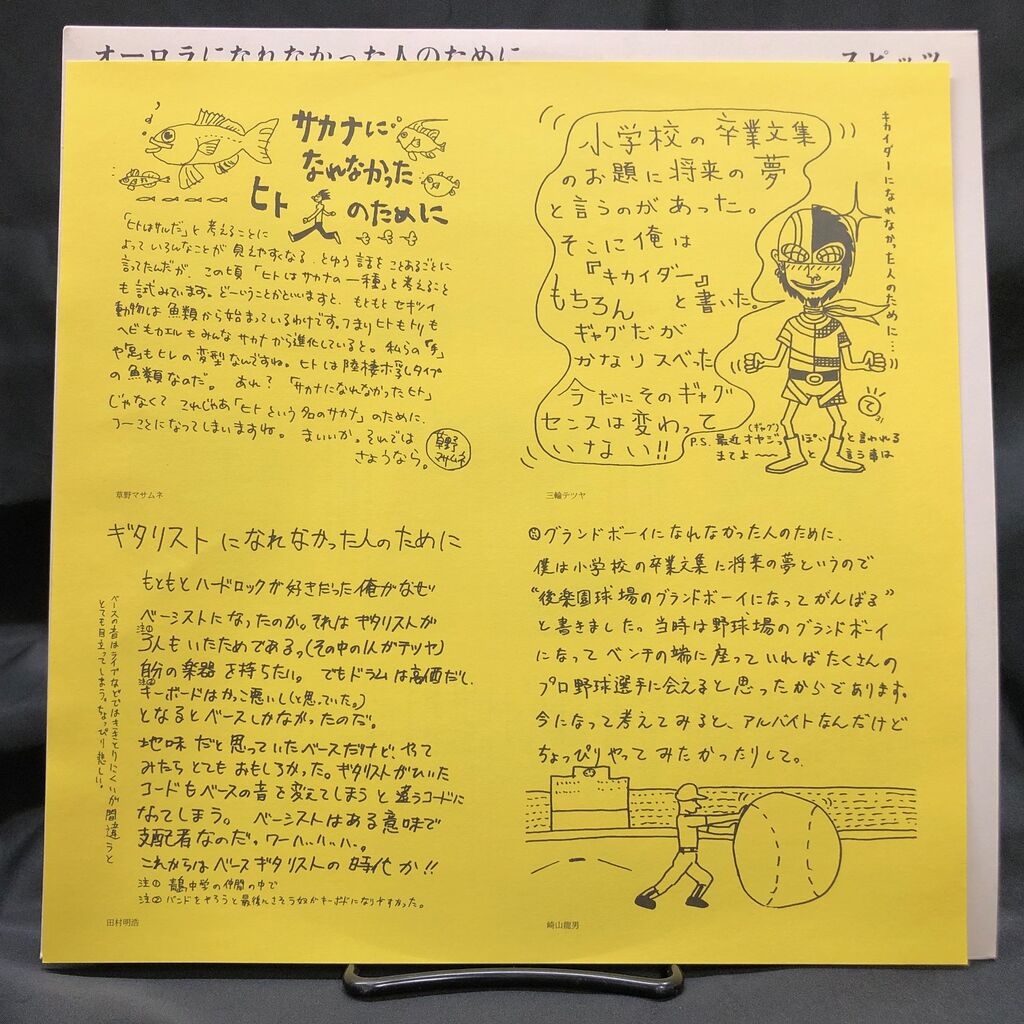 オーロラになれなかった人のために
スピッツ
サカナに
なれなかった
ヒト のために
「ヒトはサルだ」と考えることに
よっていろんなことが見えやすくなる、とゆう話をことあるごとに
言ってたんだが、この頃「ヒトはサカナの一種」と考えること
も試みています。どーいうことかといいますと、もともとセキツイ
動物は魚類から始まっているわけです。つまりヒトもトリも
ヘビもカエルもみんなサカナから進化していると。私らの「手」
や「足」もヒレの変型なんですね。ヒトは陸棲ホ乳タイプ
の魚類なのだ。 あれ？「サカナになれなかったヒト」
じゃなくて これじゃあ「ヒトという名のサカナ」のために、
つーことになってしまいますね。 まいいか。それでは
さようなら。
草野
マサムネ
草野マサムネ
小学校の卒業文集
のお題に将来の夢
と言うのがあった。
そこに俺は
『キカイダー』
もちろん と書いた。
ギャグだが
かなりスベった
今だにそのギャグ
センスは変わって
いない!!
キカイダーになれなかった人のために…
て
P.S. 最近オヤジっ(ギャグ)ぽいと言われる
までよ〜〜と言う事は
三輪テツヤ
ギタリストになれなかった人のために
もともとハードロックが好きだった俺がなぜ
ベーシストになったのか。それはギタリストが
注①
3人もいたためである。(その中の1人がテツヤ)
自分の楽器を持ちたい。 でもドラムは高価だし、
注②
キーボードはかっこ悪いし(と思っていた。)
となるとベースしかなかったのだ。
地味だと思っていたベースだけど、やって
みたらとてもおもしろかった。ギタリストがひいた
コードもベースの音を変えてしまうと違うコードに
なってしまう。 ベーシストはある意味で
支配者なのだ。ワーハッハッハ。
これからはベースギタリストの時代か!!
注① 青島中学の仲間の中で
注② バンドをやろうと最後にさそう奴がキーボードになりやすかった。
ベースの音はライブなどではききとりにくいが間違うと
とても目立ってしまう。ちょっぴり悲しい。
田村明浩
グランドボーイになれなかった人のために、
僕は小学校の卒業文集に将来の夢というので
“後楽園球場のグランドボーイになってがんばる”
と書きました。当時は野球場のグランドボーイ
になって ベンチの端に座っていればたくさんの
プロ野球選手に会えると思ったからであります。
今になって考えてみると、アルバイトなんだけど
ちょっぴりやってみたかったりして。
崎山龍男